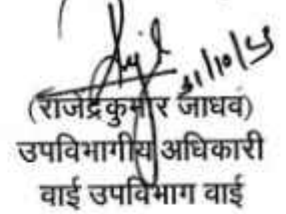 (राजेंद्रकुमार जाधव)
उपविभागीय अधिकारी
वाई उपविभाग वाई